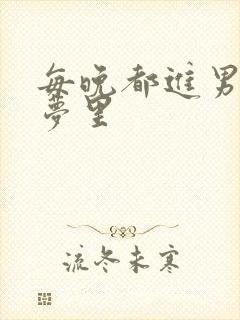 每晚都进男
梦里
流冬未寒